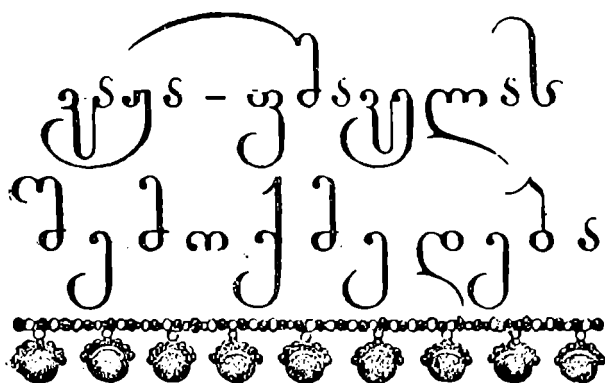 ვაჟა-ფშაველას
შემოქმედება